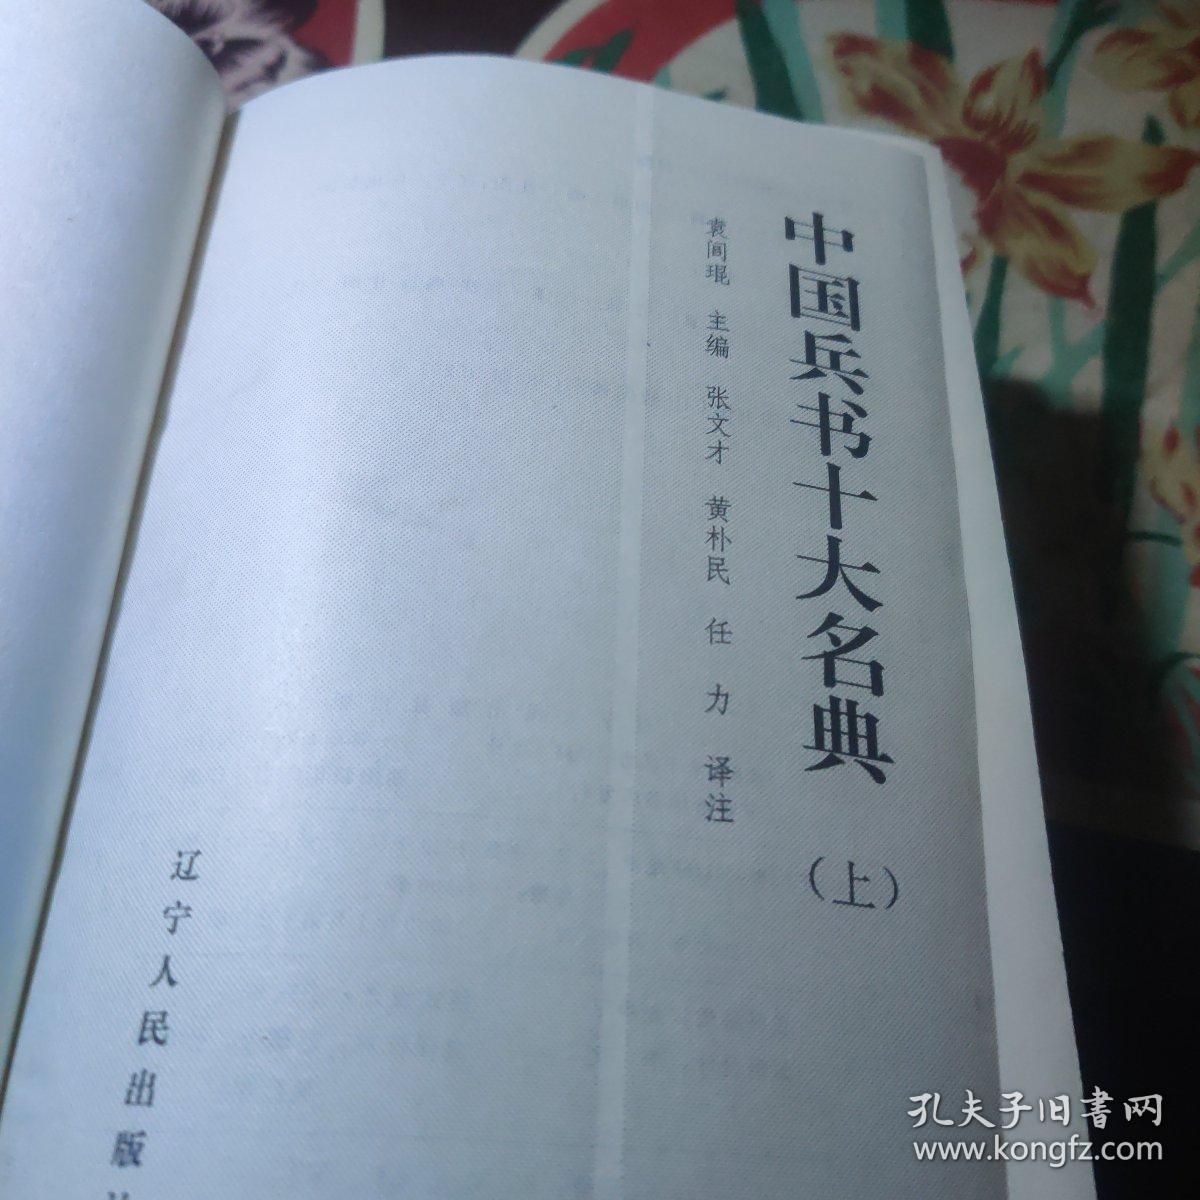 中国兵书十大名典（上）
袁闾琨 主编 张文才 黄朴民 任 力 译注
辽宁人民出版
孔夫子旧書网
www.kongfz.com